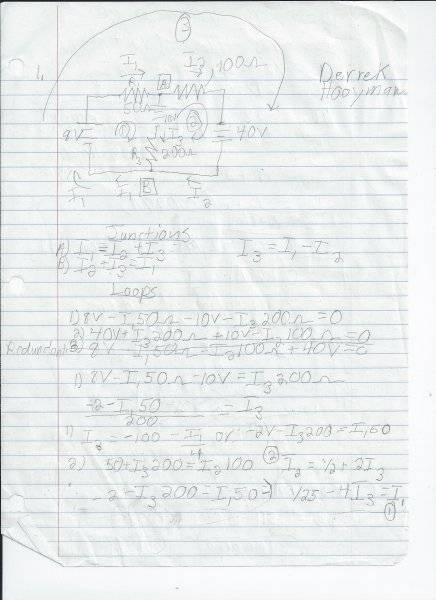 ③
1.
I₁ I₂, 100Ω
Derrek
Hooyman
R₁ A
50Ω
10V
8V ① ② 40V
I₃
R₃ 200Ω
I₁ I₁ B I₂
Junctions
A) I₁ = I₂ + I₃ I₃ = I₁ - I₂
B) I₂ + I₃ = I₁
Loops
1) 8V - I₁50Ω - 10V - I₃200Ω = 0
2) 40V + I₃200Ω + 10V - I₂100Ω = 0
Redundant 3) 8V - I₁50Ω - I₂100Ω + 40V = 0
1) 8V - I₁50Ω - 10V = I₃200Ω
-2 - I₁50 = I₃
200
1) I₃ = -100 - I₁ or -2V - I₃200 = I₁50
4
2) 50 + I₃200 = I₂100 ② I₂ = 1/2 + 2I₃
-2 - I₃200 = I₁50 → 1/25 - 4I₃ = I₁
①